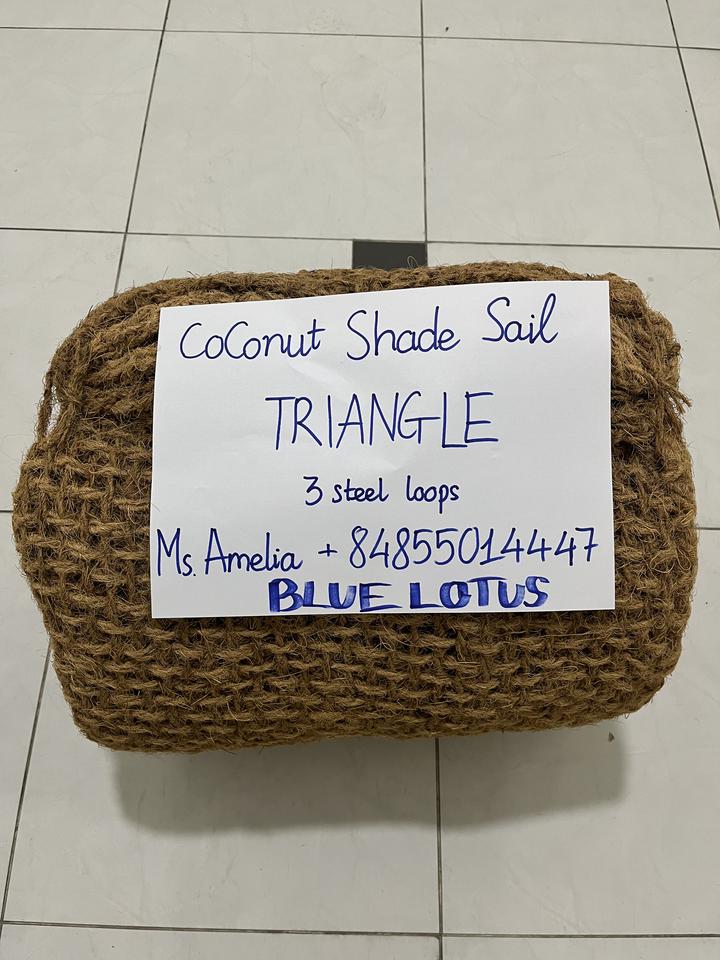 CoConut Shade Sail
TRIANGLE
3 steel loops
Ms. Amelia + 84855014447
BLUE LOTUS